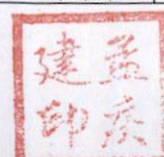 孟庆
建印